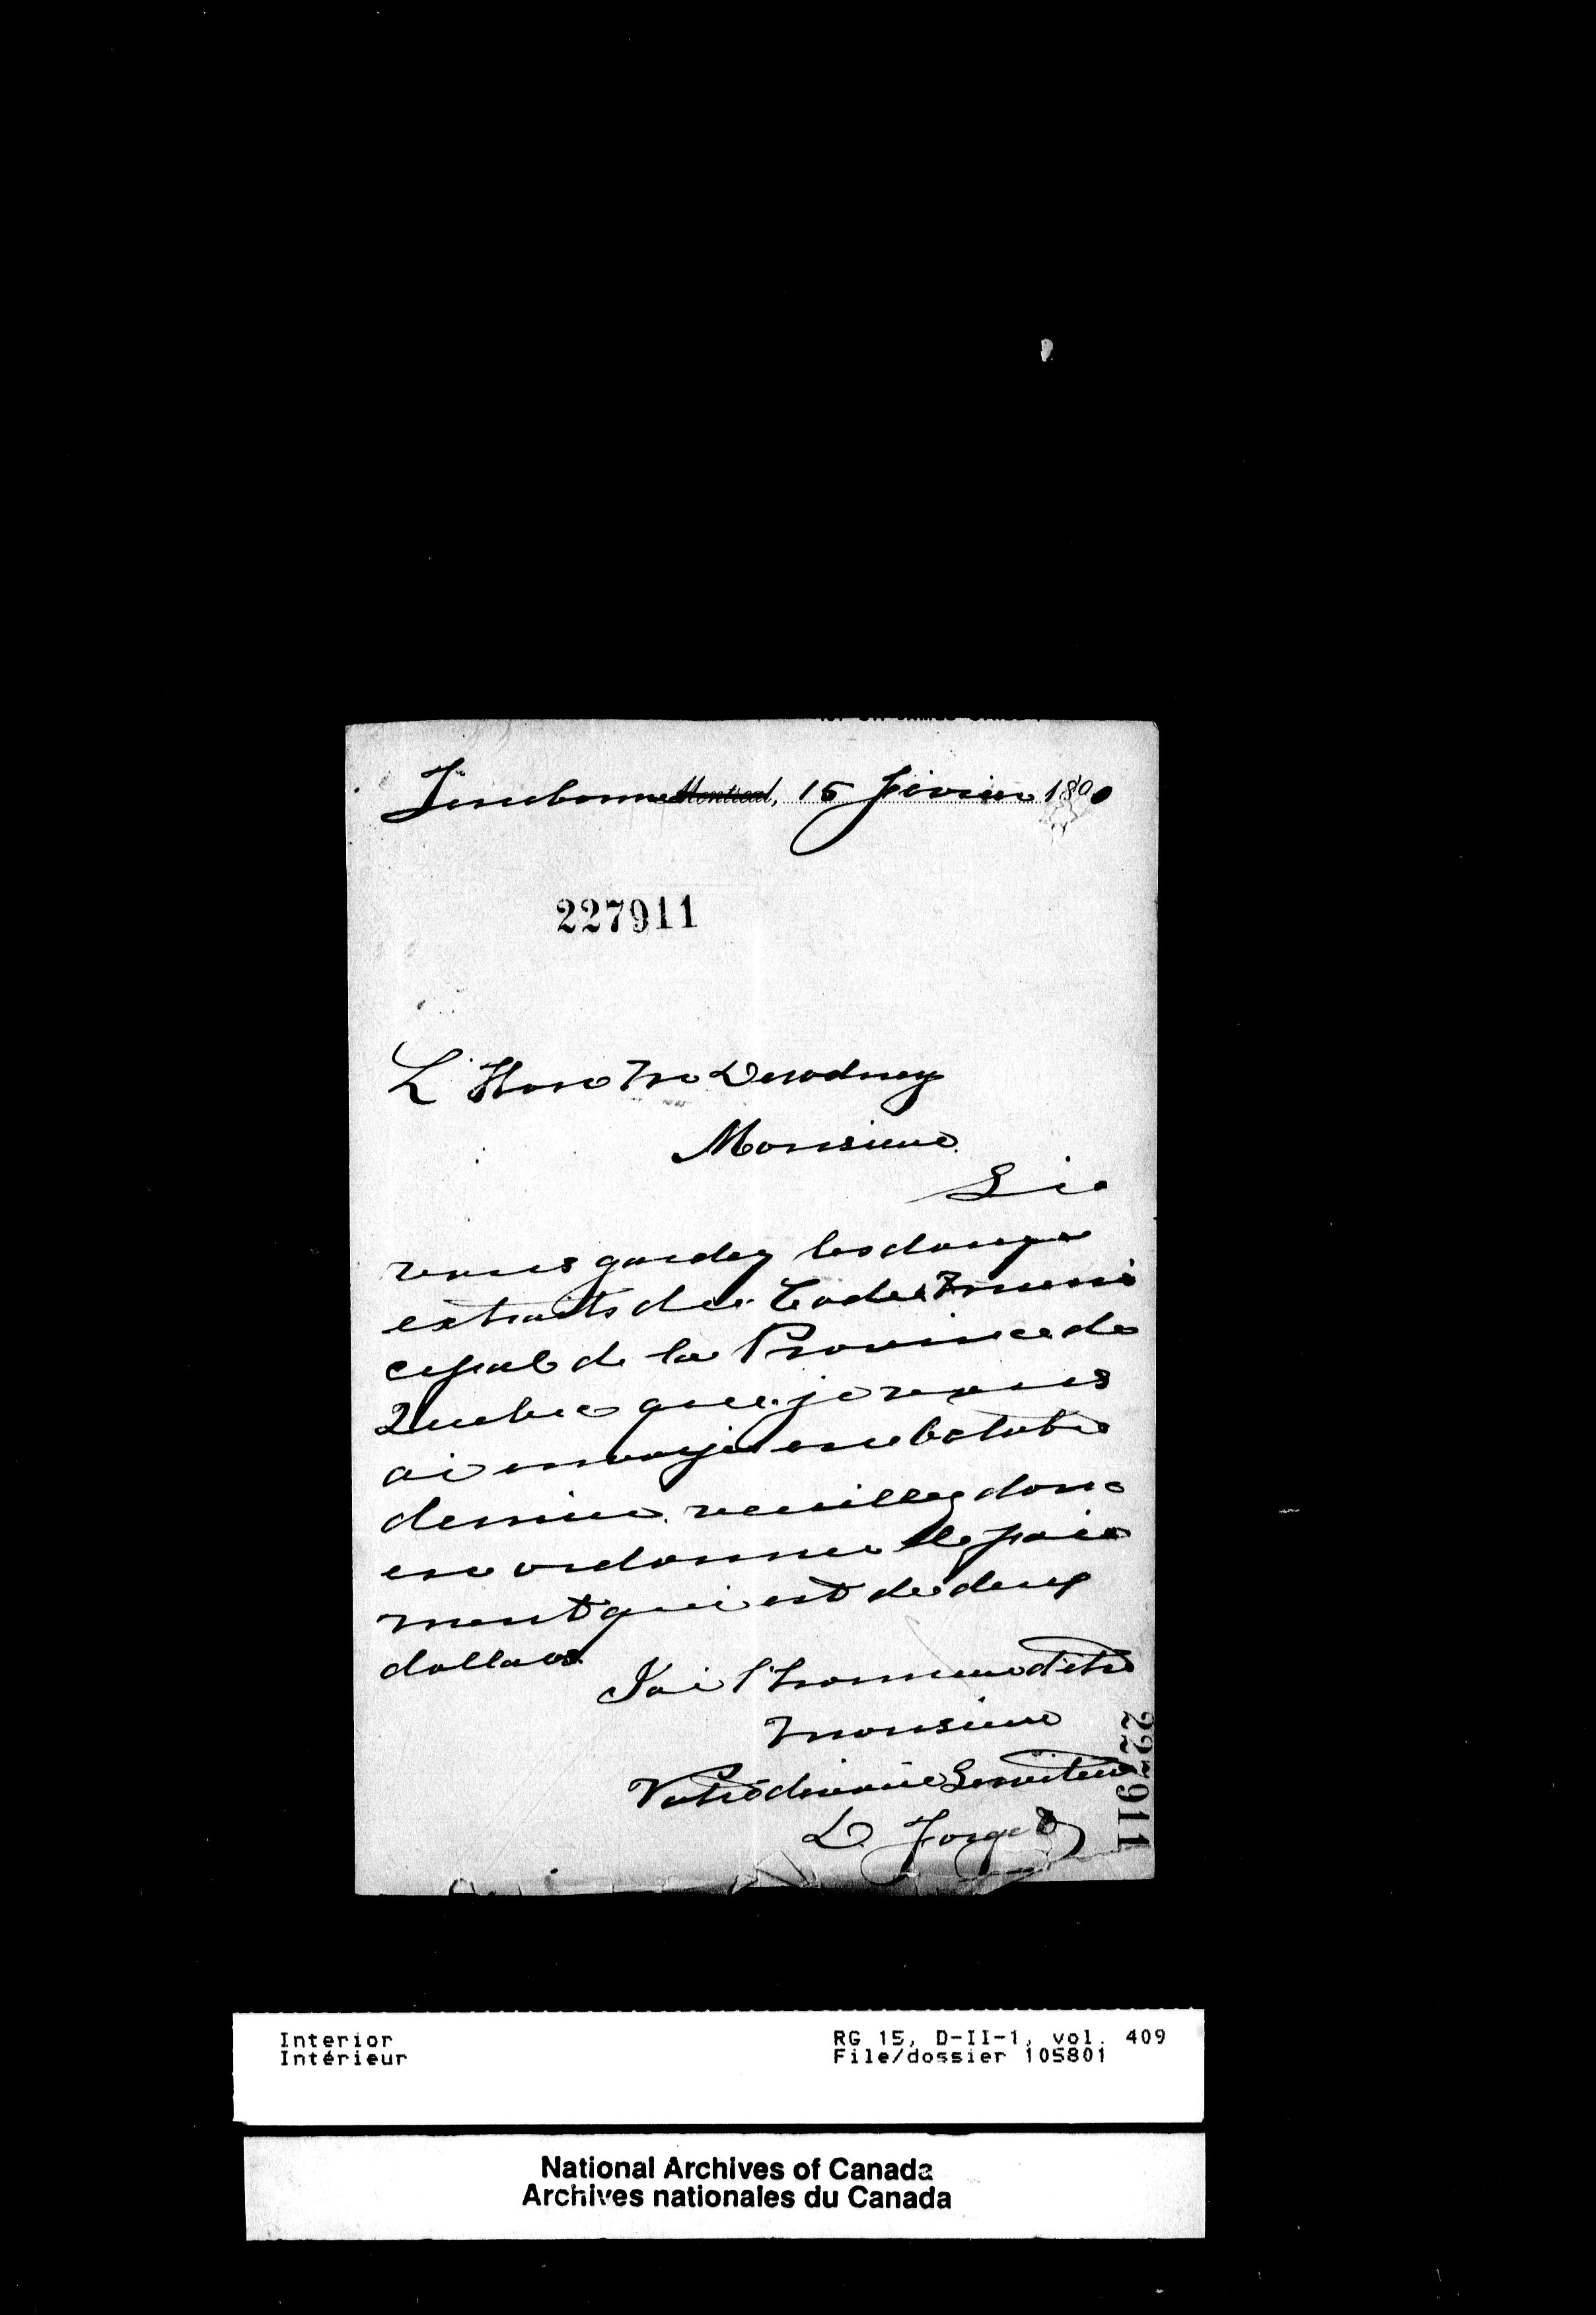 Terrebonne Montreal, 15 février 1890
227911
L'Hon Mr Dewdney
Monsieur
Si
vous gardez les deux
extraits du Code Muni
cipal de la Province de
Quebec que je vous
ai envoyé en octobre
dernier veuillez donc
en ordonner le paie
ment qui est de deux
dollars
J'ai l'honneur d'etre
Monsieur
Votre devoué Serviteur
L. Forget
227911
Interior RG 15, D-II-1, vol. 409
Intérieur File/dossier 105801
National Archives of Canada
Archives nationales du Canada